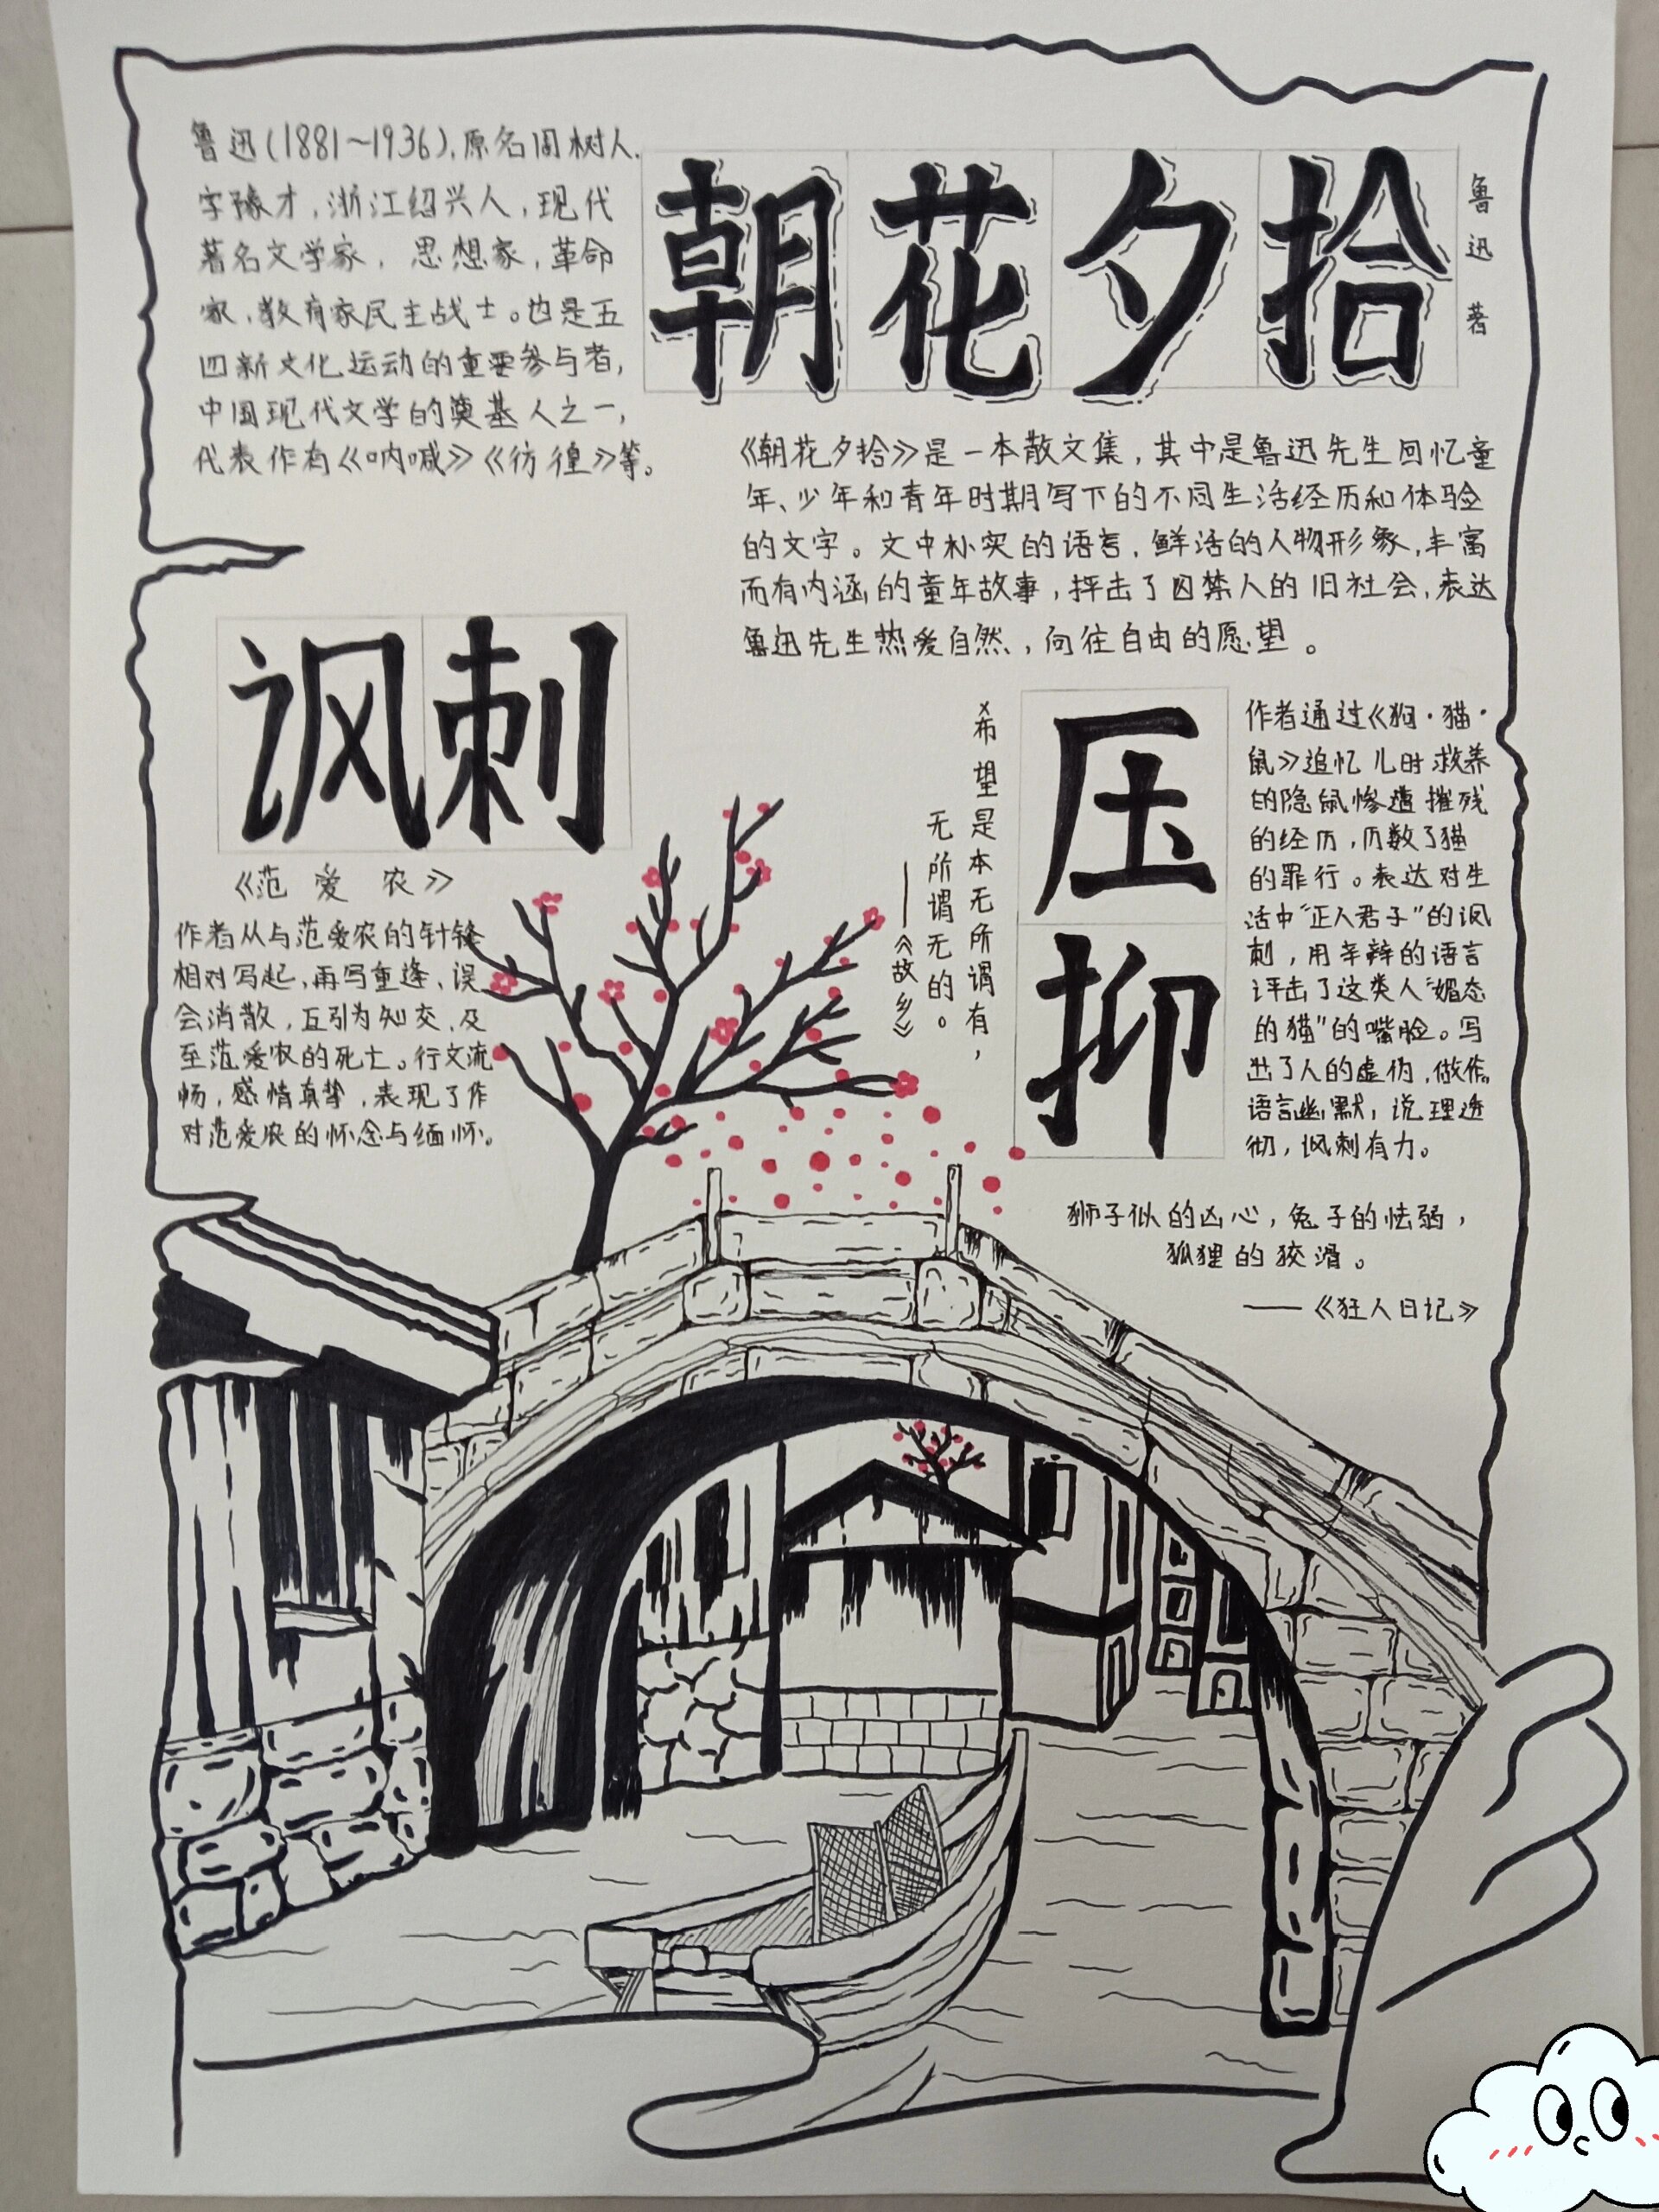 朝花夕拾
鲁迅著
鲁迅(1881~1936),原名周树人,
字豫才,浙江绍兴人,现代
著名文学家,思想家,革命
家,教育家民主战士。也是五
四新文化运动的重要参与者,
中国现代文学的奠基人之一,
代表作有《呐喊》《彷徨》等。
《朝花夕拾》是一本散文集,其中是鲁迅先生回忆童
年、少年和青年时期写下的不同生活经历和体验
的文字。文中朴实的语言,鲜活的人物形象,丰富
而有内涵的童年故事,抨击了囚禁人的旧社会,表达
鲁迅先生热爱自然,向往自由的愿望。
讽刺
《范爱农》
作者从与范爱农的针锋
相对写起,再写重逢,误
会消散,互引为知交,及
至范爱农的死士。行文流
畅,感情真挚,表现了作
对范爱农的怀念与缅怀。
希望是本无所谓有,
无所谓无的。
——《故乡》
压抑
作者通过《狗·猫·
鼠》追忆儿时救养
的隐鼠惨遭摧残
的经历,历数了猫
的罪行。表达对生
活中“正人君子”的讽
刺,用辛辣的语言
评击了这类人“媚态
的猫”的嘴脸。写
出了人的虚伪,做作。
语言幽默,说理透
彻,讽刺有力。
狮子似的凶心,兔子的怯弱,
狐狸的狡滑。
——《狂人日记》